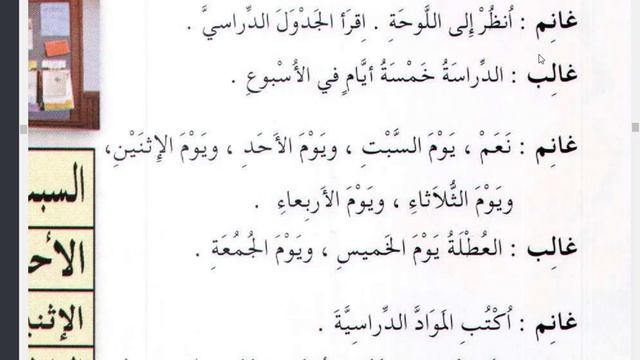 غانِم : اُنظُرْ إِلى اللَّوحَةِ . اِقرَأ الجَدْوَلَ الدِّراسيَّ .
غالِب : الدِّراسَةُ خَمْسَةُ أيَّامٍ في الأُسْبوعِ .
غانِم : نَعَمْ ، يَوْمَ السَّبْتِ ، ويَوْمَ الأَحَدِ ، ويَوْمَ الإِثنَيْنِ،
ويَوْمَ الثُّلاَثاءِ ، ويَوْمَ الأَربعاءِ .
غالِب : العُطْلَةُ يَوْمَ الخَميسِ ، ويَوْمَ الجُمُعَةِ .
غانِم : اُكْتُبِ المَوَادَّ الدِّراسِيَّةَ .
السبت